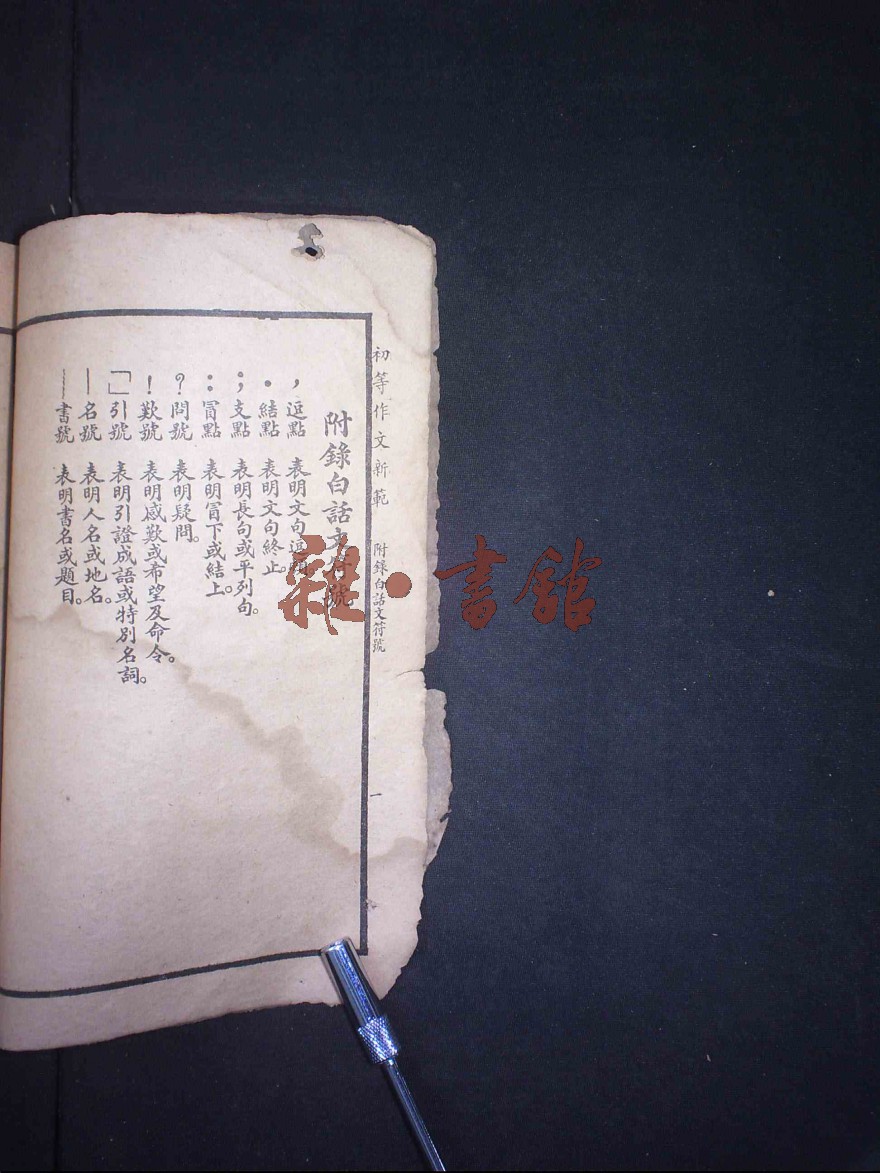 初等作文新範　附錄白話文符號　一
附錄白話文符號
，逗點　表明文句逗頓。
．結點　表明文句終止。
；支點　表明長句或平列句。
：冒點　表明冒下或結上。
？問號　表明疑問。
！歎號　表明感歎或希望及命令。
「」引號　表明引證成語或特別名詞。
—名號　表明人名或地名。
﹏書號　表明書名或題目。
雜•書館